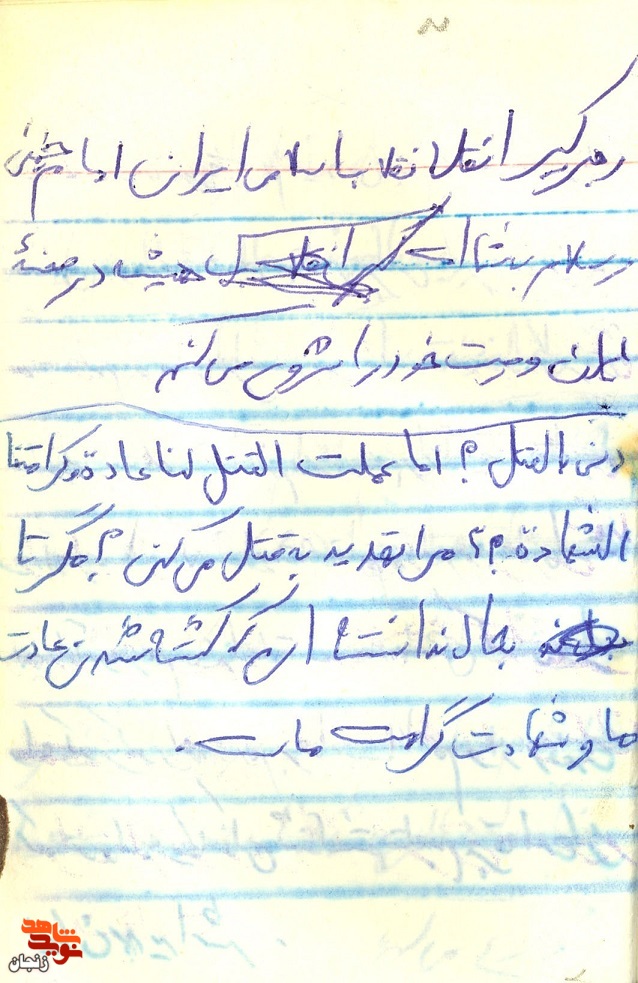 رهبر کبیر انقلاب اسلامی ایران امام خمینی
و سلام بشما امت همیشه در صحنۀ
ایران وصیت خود را شروع می‌کنم
بالقتل؟ اما علمت القتل لنا عادة و کرامتنا
الشهادة ؟؟ مرا تهدید به قتل می‌کنی؟ مگر تا
بحال ندانسته‌ای که کشته شدن عادت
ما و شهادت کرامت ماست.
نوید شاهد
زنجان